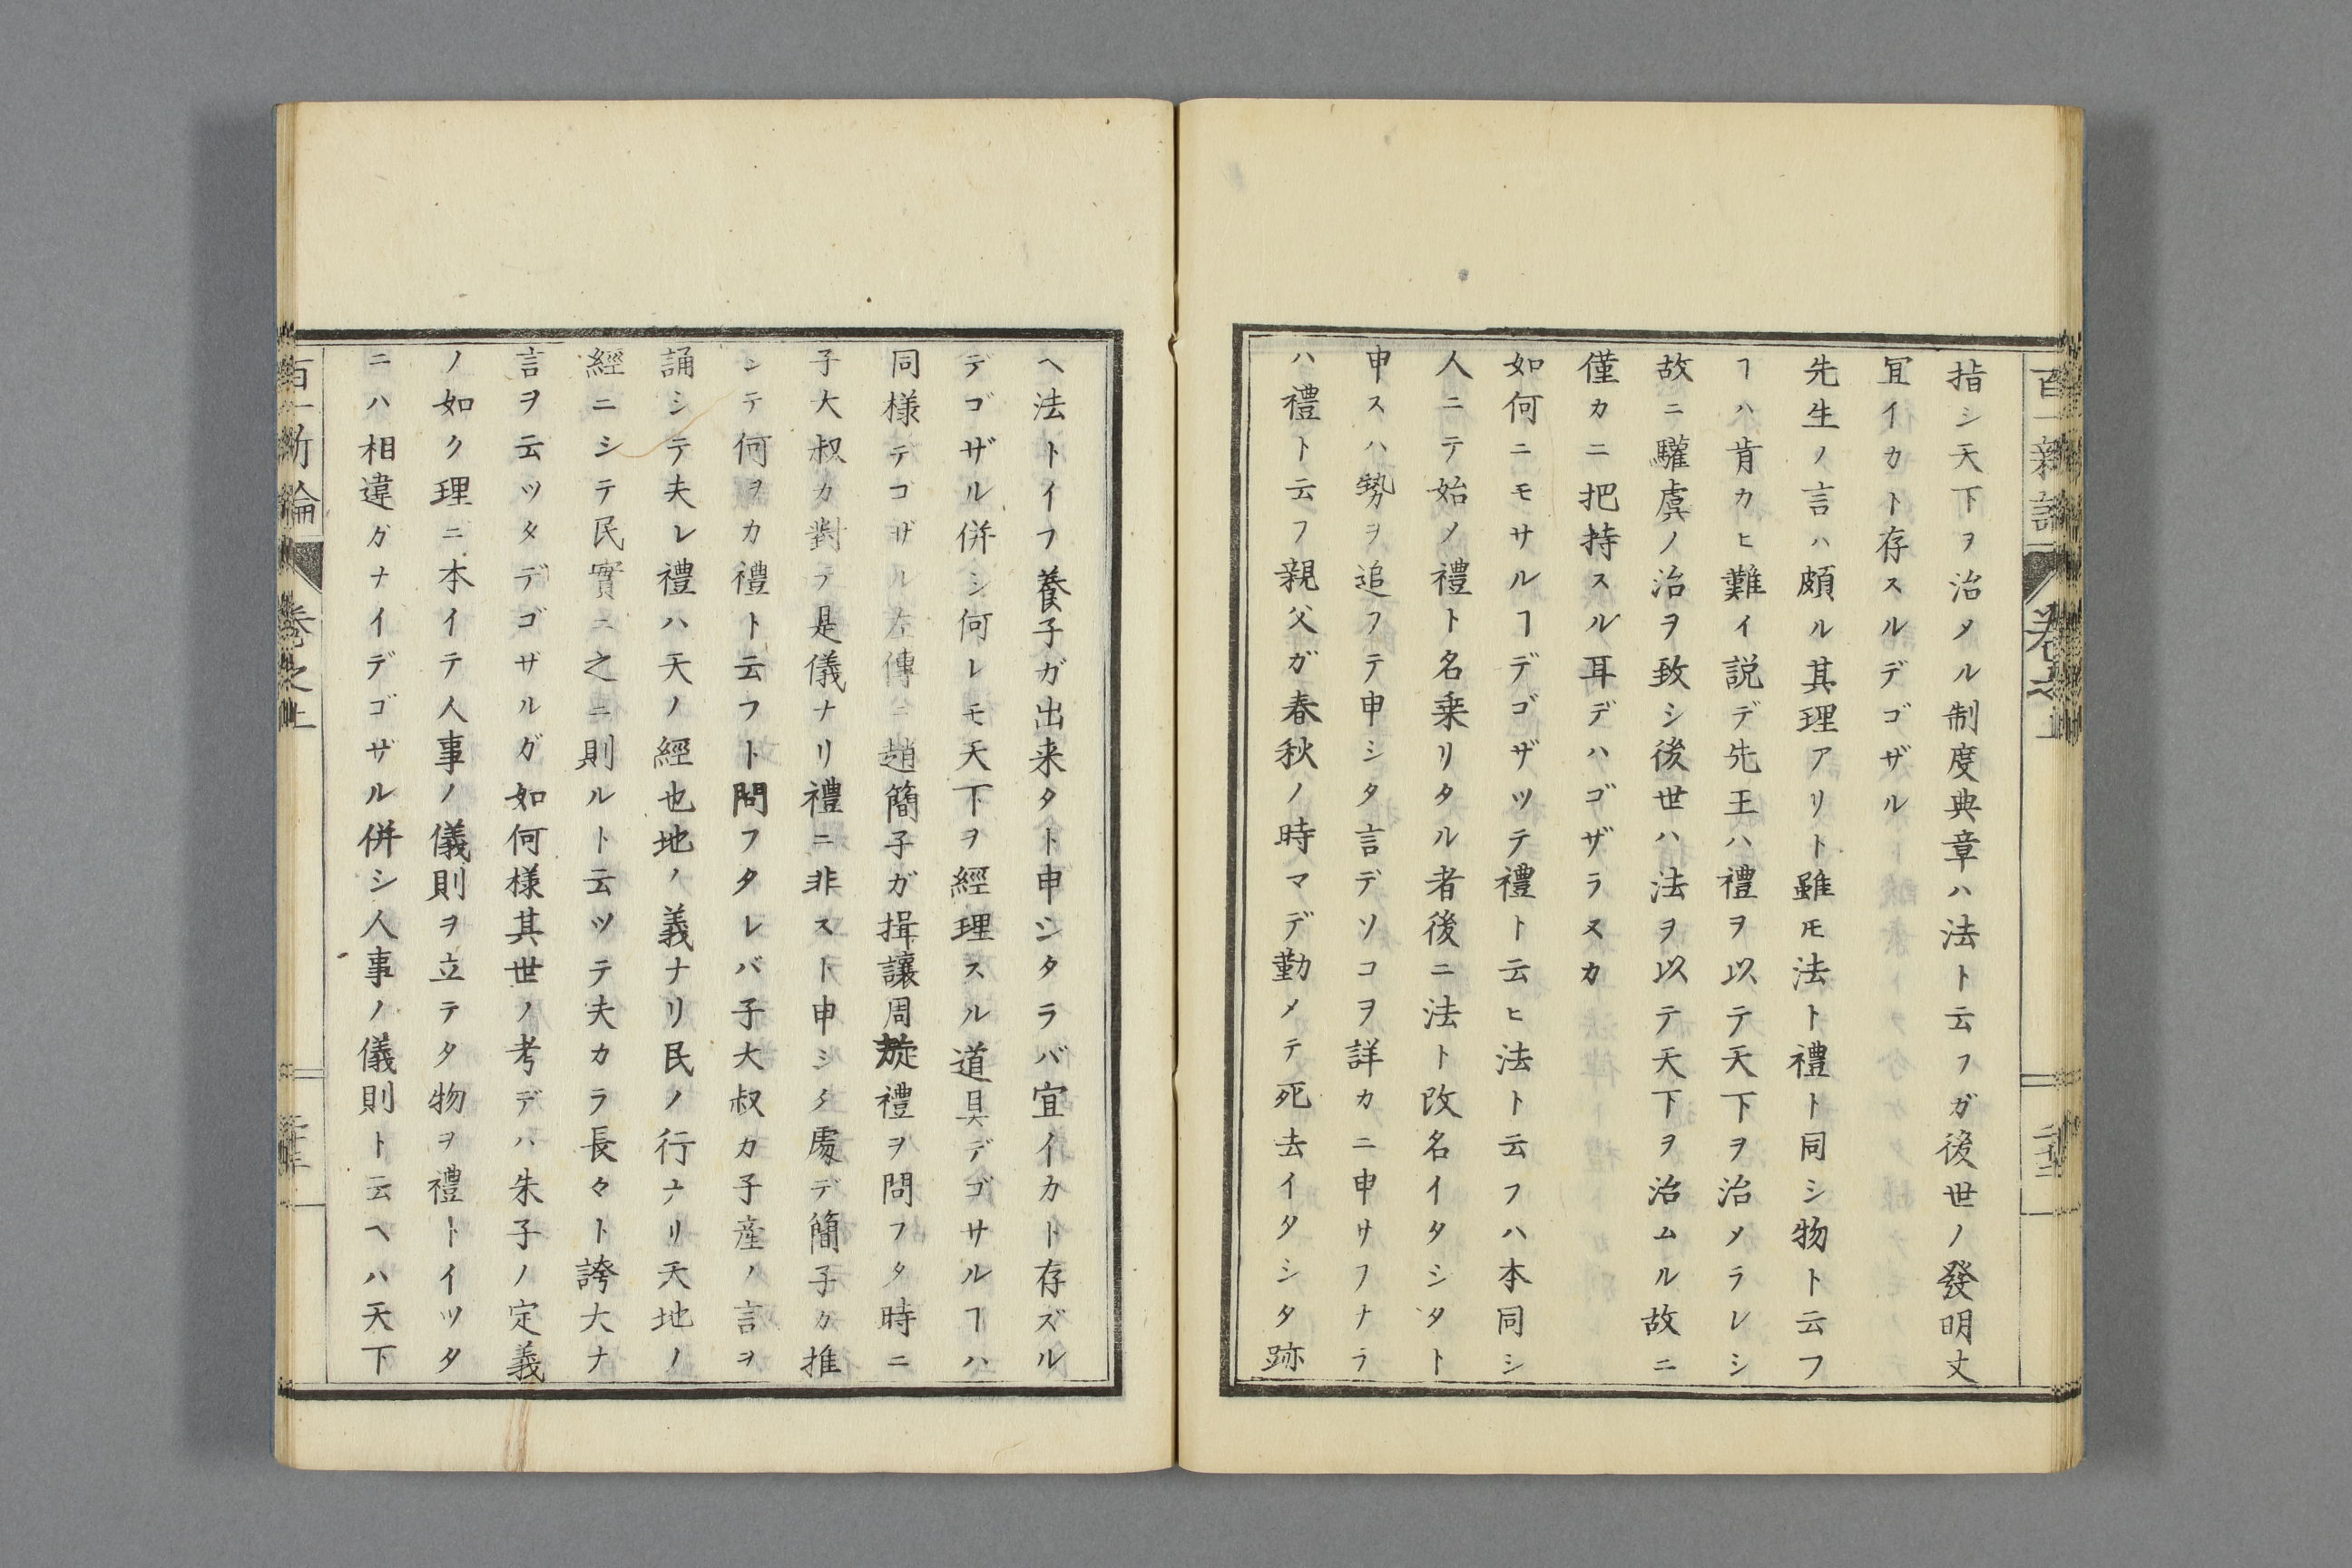 指シ天下ヲ治タル制度典章ハ法ト云フガ後世ノ發明丈
冝イカト存スルデゴザル
先生ノ言ハ頗ル其理アリト雖モ法ト禮ト同シ物ト云フ
ヿハ肯カヒ難イ説デ先王ハ禮ヲ以テ天下ヲ治メラレシ
故ニ驩虞ノ治ヲ致シ後世ハ法ヲ以テ天下ヲ治ムル故ニ
僅カニ把持スル耳デハゴザラヌカ
如何ニモサルヿデゴザツテ禮ト云ヒ法ト云フハ本同シ
人ニテ始メ禮ト名乗リタル者後ニ法ト改名イタシタト
申スハ勢ヲ追フテ申シタ言デソコヲ詳カニ申サフナラ
ハ禮ト云フ親父ガ春秋ノ時マデ勤メテ死去イタシタ跡
ヘ法トイフ養子ガ出来タト申シタラバ宜イカト存ズル
デゴザル併シ何レモ天下ヲ經理スル道具デゴサルヿハ
同様テコザル左傳ニ趙簡子ガ揖讓周旋禮ヲ問フタ時ニ
子大叔カ對テ是儀ナリ禮ニ非スト申シタ處デ簡子カ推
シテ何ヲカ禮ト云フト問フタレバ子大叔カ子産ノ言ヲ
誦シテ夫レ禮ハ天ノ經也地ノ義ナリ民ノ行ナリ天地ノ
經ニシテ民實ニ之ニ則ルト云ツテ夫カラ長々ト誇大ナ
言ヲ云ツタデゴザルガ如何様其世ノ考デハ朱子ノ定義
ノ如ク理ニ本イテ人事ノ儀則ヲ立テタ物ヲ禮トイツタ
ニハ相違ガナイデゴザル併シ人事ノ儀則ト云ヘハ天下
百一新論
巻之上